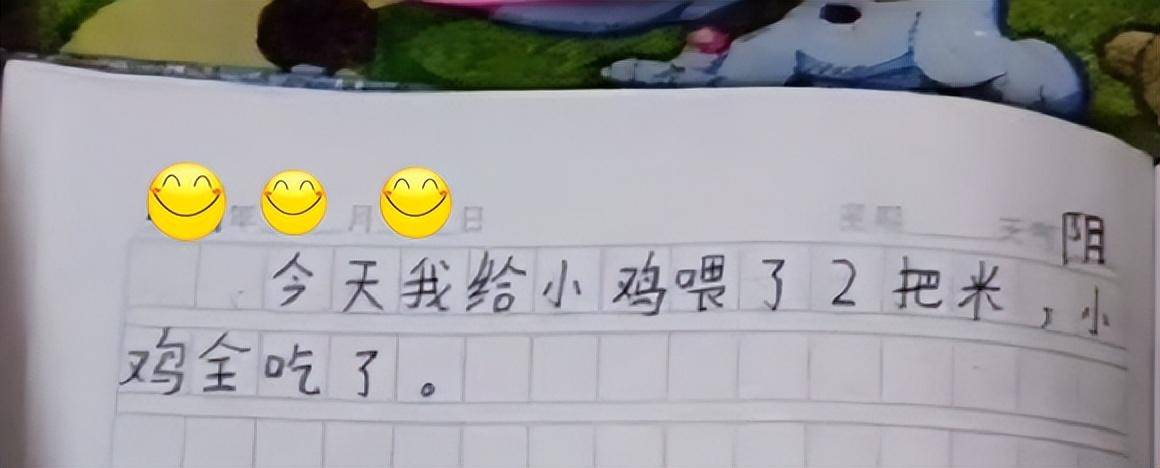 年 月 日 星期 天气 阴
今天我给小鸡喂了2把米，小
鸡全吃了。